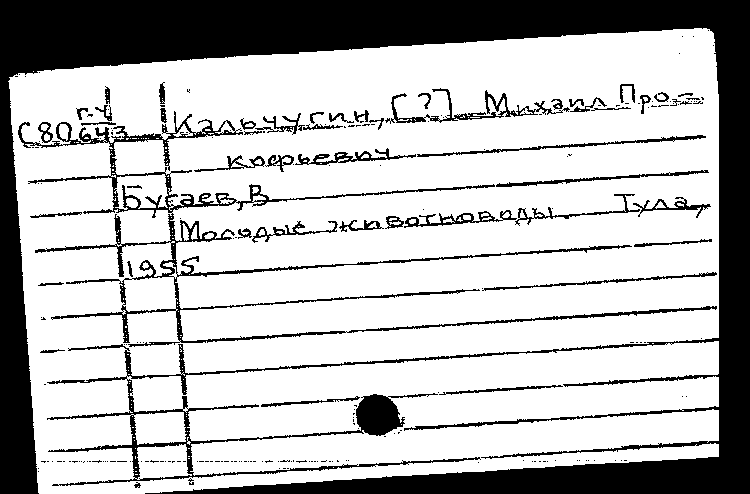 г-у
С80 643 Кальчугин, [?] Михаил Про-
кофьевич
Бугаев, В.
Молодые животноводы. Тула,
1955.